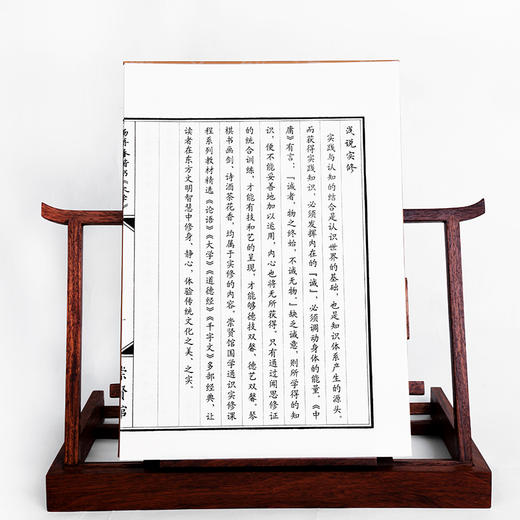 浅说实修
实践与认知的结合是认识世界的基础，也是知识体系产生的源头。
而获得实践知识，必须发挥内在的「诚」，必须调动身体的能量。《中
庸》有言：「诚者，物之终始，不诚无物。」缺乏诚意，则所学得的知
识，便不能妥善地加以运用，内心也将无所获得。只有通过闻思修证
的统合训练，才能有技和艺的呈现，才能够德技双馨、德艺双馨。琴
棋书画剑、诗酒茶花香，均属于实修的内容。崇贤馆国学通识实修课
程系列教材精选《论语》《大学》《道德经》《千字文》多部经典，让
读者在东方文明智慧中修身、静心，体验传统文化之美、之实。
崇贤馆